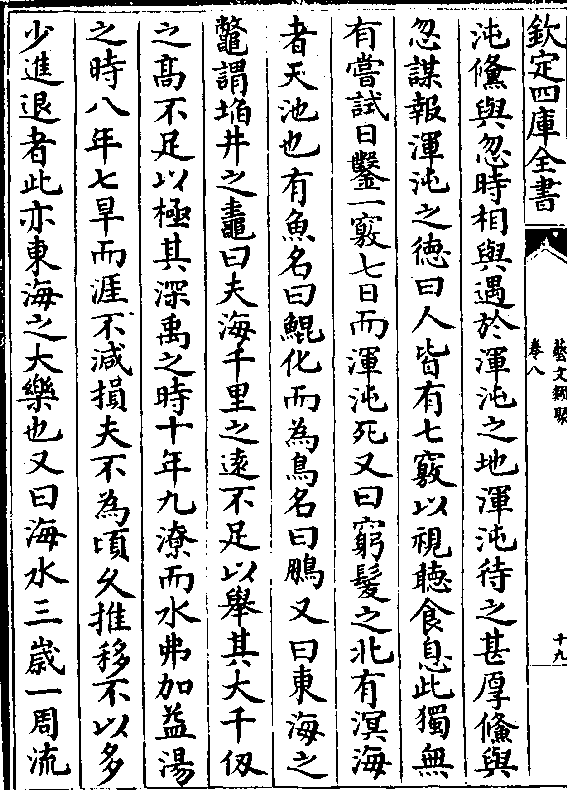 欽定四庫全書
藝文類聚
卷八
十九
沌儵與忽時相與遇於渾沌之地渾沌待之甚厚儵與
忽謀報渾沌之德曰人皆有七竅以視聽食息此獨無
有嘗試日鑿一竅七日而渾沌死又曰窮髮之北有溟海
者天池也有魚名曰鯤化而為鳥名曰鵬又曰東海之
鼈謂埳井之鼃曰夫海千里之遠不足以舉其大千仞
之髙不足以極其深禹之時十年九潦而水弗加益湯
之時八年七旱而涯不減損夫不為頃久推移不以多
少進退者此亦東海之大樂也又曰海水三歲一周流